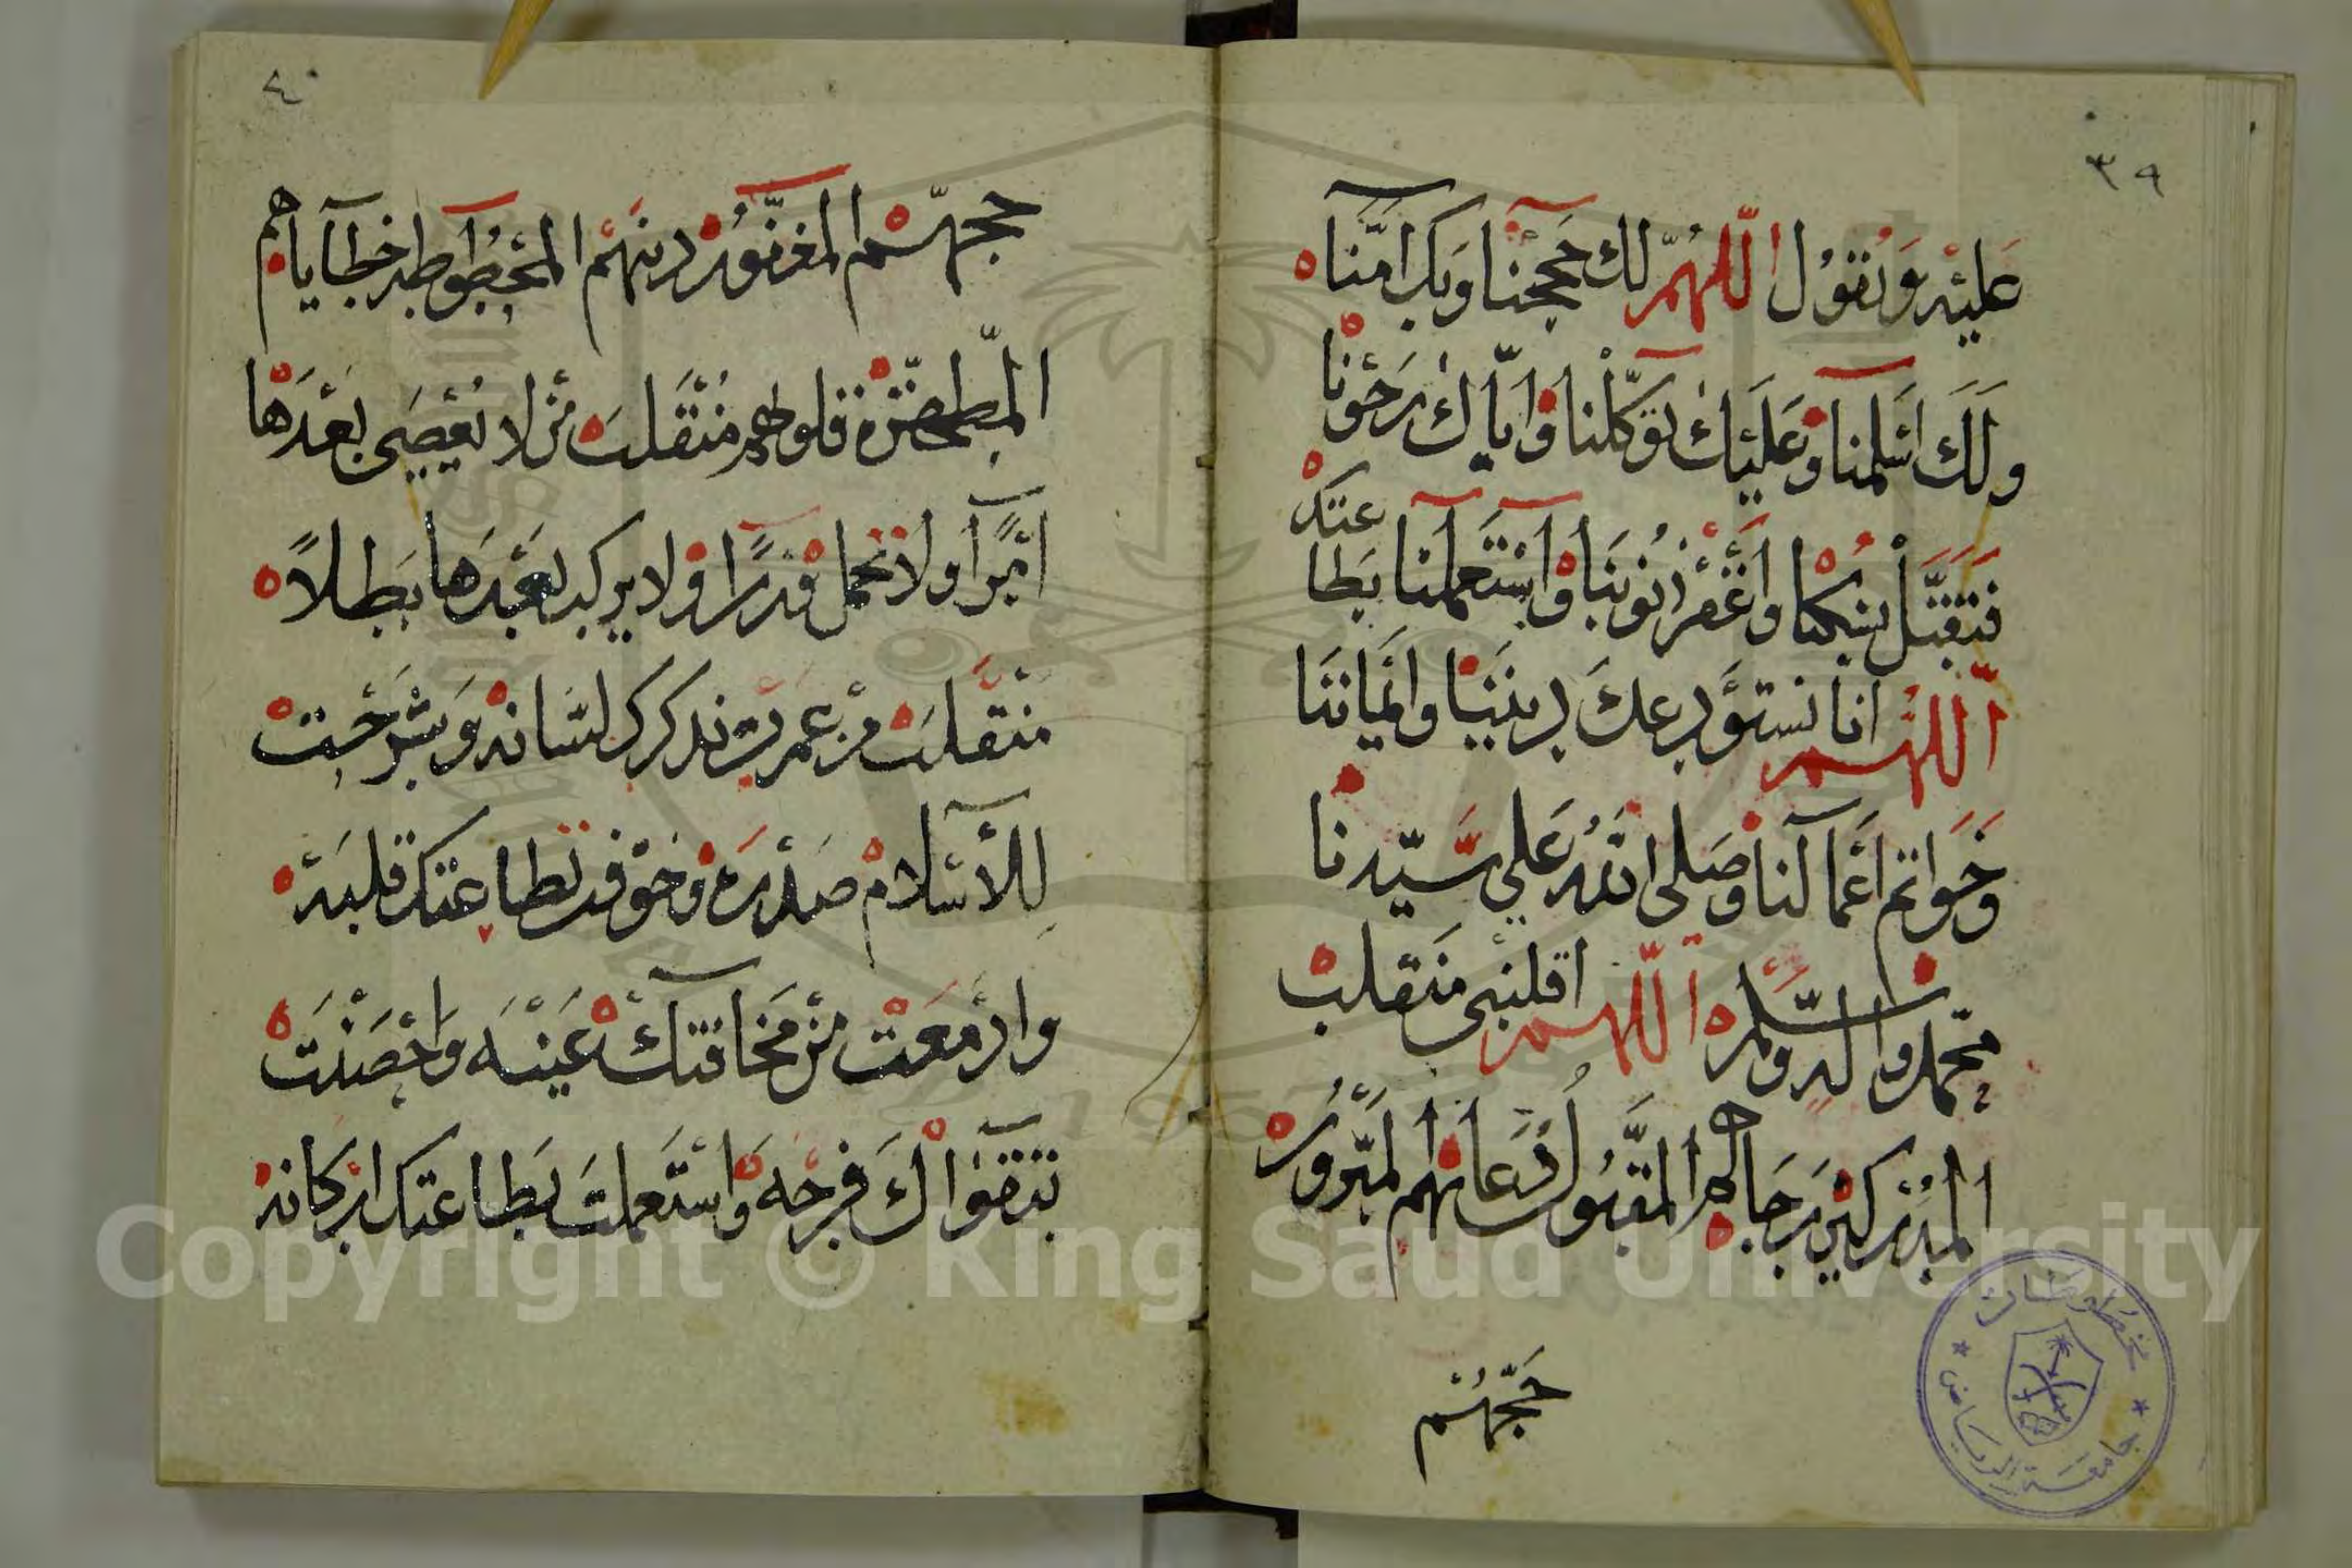 ٣٩
عَليْه وَتقوُل اللّهُمّ لك حَججْنا وَبك امَنّآ
ولَكَ اسْلمنا وَعَليْكَ توَكّلْنا وَايّاكَ رَجَوْنا
فَتَقبَّلْ نسُكنا وَاغْفرْ ذنُوبَنا وَاسْتَعملنا بَطا عتك
اللهُم انا نستَوْدعكَ دِينَنا وايمَاننَا
وَخَوَاتم اعَمالنا وَصَلى اللهُ عَلى سَيّدنا
محّمد واله وسَلّم اللهم اقلبْنى مَنَقلب
المُدْركيْن رَجَاهم المقَبُول دُعَاهم المَبْروُر
حَجّهُمْ
٤٠
حجهّم المغفُور ذنبهْم المَحْطوطه خطآياهم
المّطهّرْة قلوبهم مُنْقَلبَ مَنْ لا يُعْصَى بَعْدَهَا
امْرًا ولا تحمل وَزرًا وَلا يركب بَعْدَهَا بَطلاً
منْقَلبَ مَن عمرت بذكرك لسَانهْ وَشرَحْت
للاسْلام صَدْرَهْ وَخوْفت بطاعتك قلبَهْ
وادْمَعْت مَنْ مَخافتكْ عَيْنَه وَاحْصَنْتَ
بتقوَاكَ فرجْه وَاسْتَعملتَ بَطاعتك اركانهْ
Copyright © King Saud University
مخطوطات
جامعة الرياض